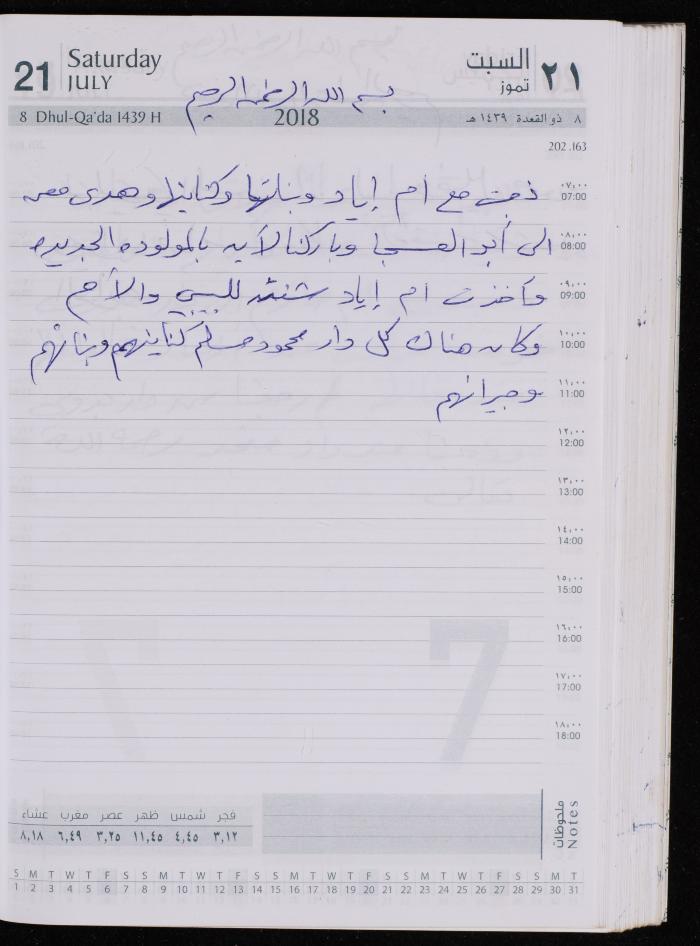 21 Saturday JULY
السبت تموز ٢١
بسم الله الرحمن الرحيم
8 Dhul-Qa'da 1439 H 2018 ٨ ذو القعدة ١٤٣٩ هـ
202 .163
٠٧:٠٠ 07:00 ذهبت مع ام إياد وبناتها وكنايننا وهدى
٠٨:٠٠ 08:00 الى أبو العسجا وباركنا لآيه بالمولوده الجديده
٠٩:٠٠ 09:00 وأخذت ام إياد شنته للبيبي والأم
١٠:٠٠ 10:00 وكان هناك كل دار محمود مسلم كناينهم وبناتهم
١١:٠٠ 11:00 وجيرانهم
١٢:٠٠ 12:00
١٣:٠٠ 13:00
١٤:٠٠ 14:00
١٥:٠٠ 15:00
١٦:٠٠ 16:00
7
١٧:٠٠ 17:00
١٨:٠٠ 18:00
ملحوظات Notes
فجر شمس ظهر عصر مغرب عشاء
٣,١٢ ٤,٤٥ ١١,٤٥ ٣,٢٥ ٦,٤٩ ٨,١٨
S M T W T F S S M T W T F S S M T W T F S S M T W T F S S M T
1 2 3 4 5 6 7 8 9 10 11 12 13 14 15 16 17 18 19 20 21 22 23 24 25 26 27 28 29 30 31